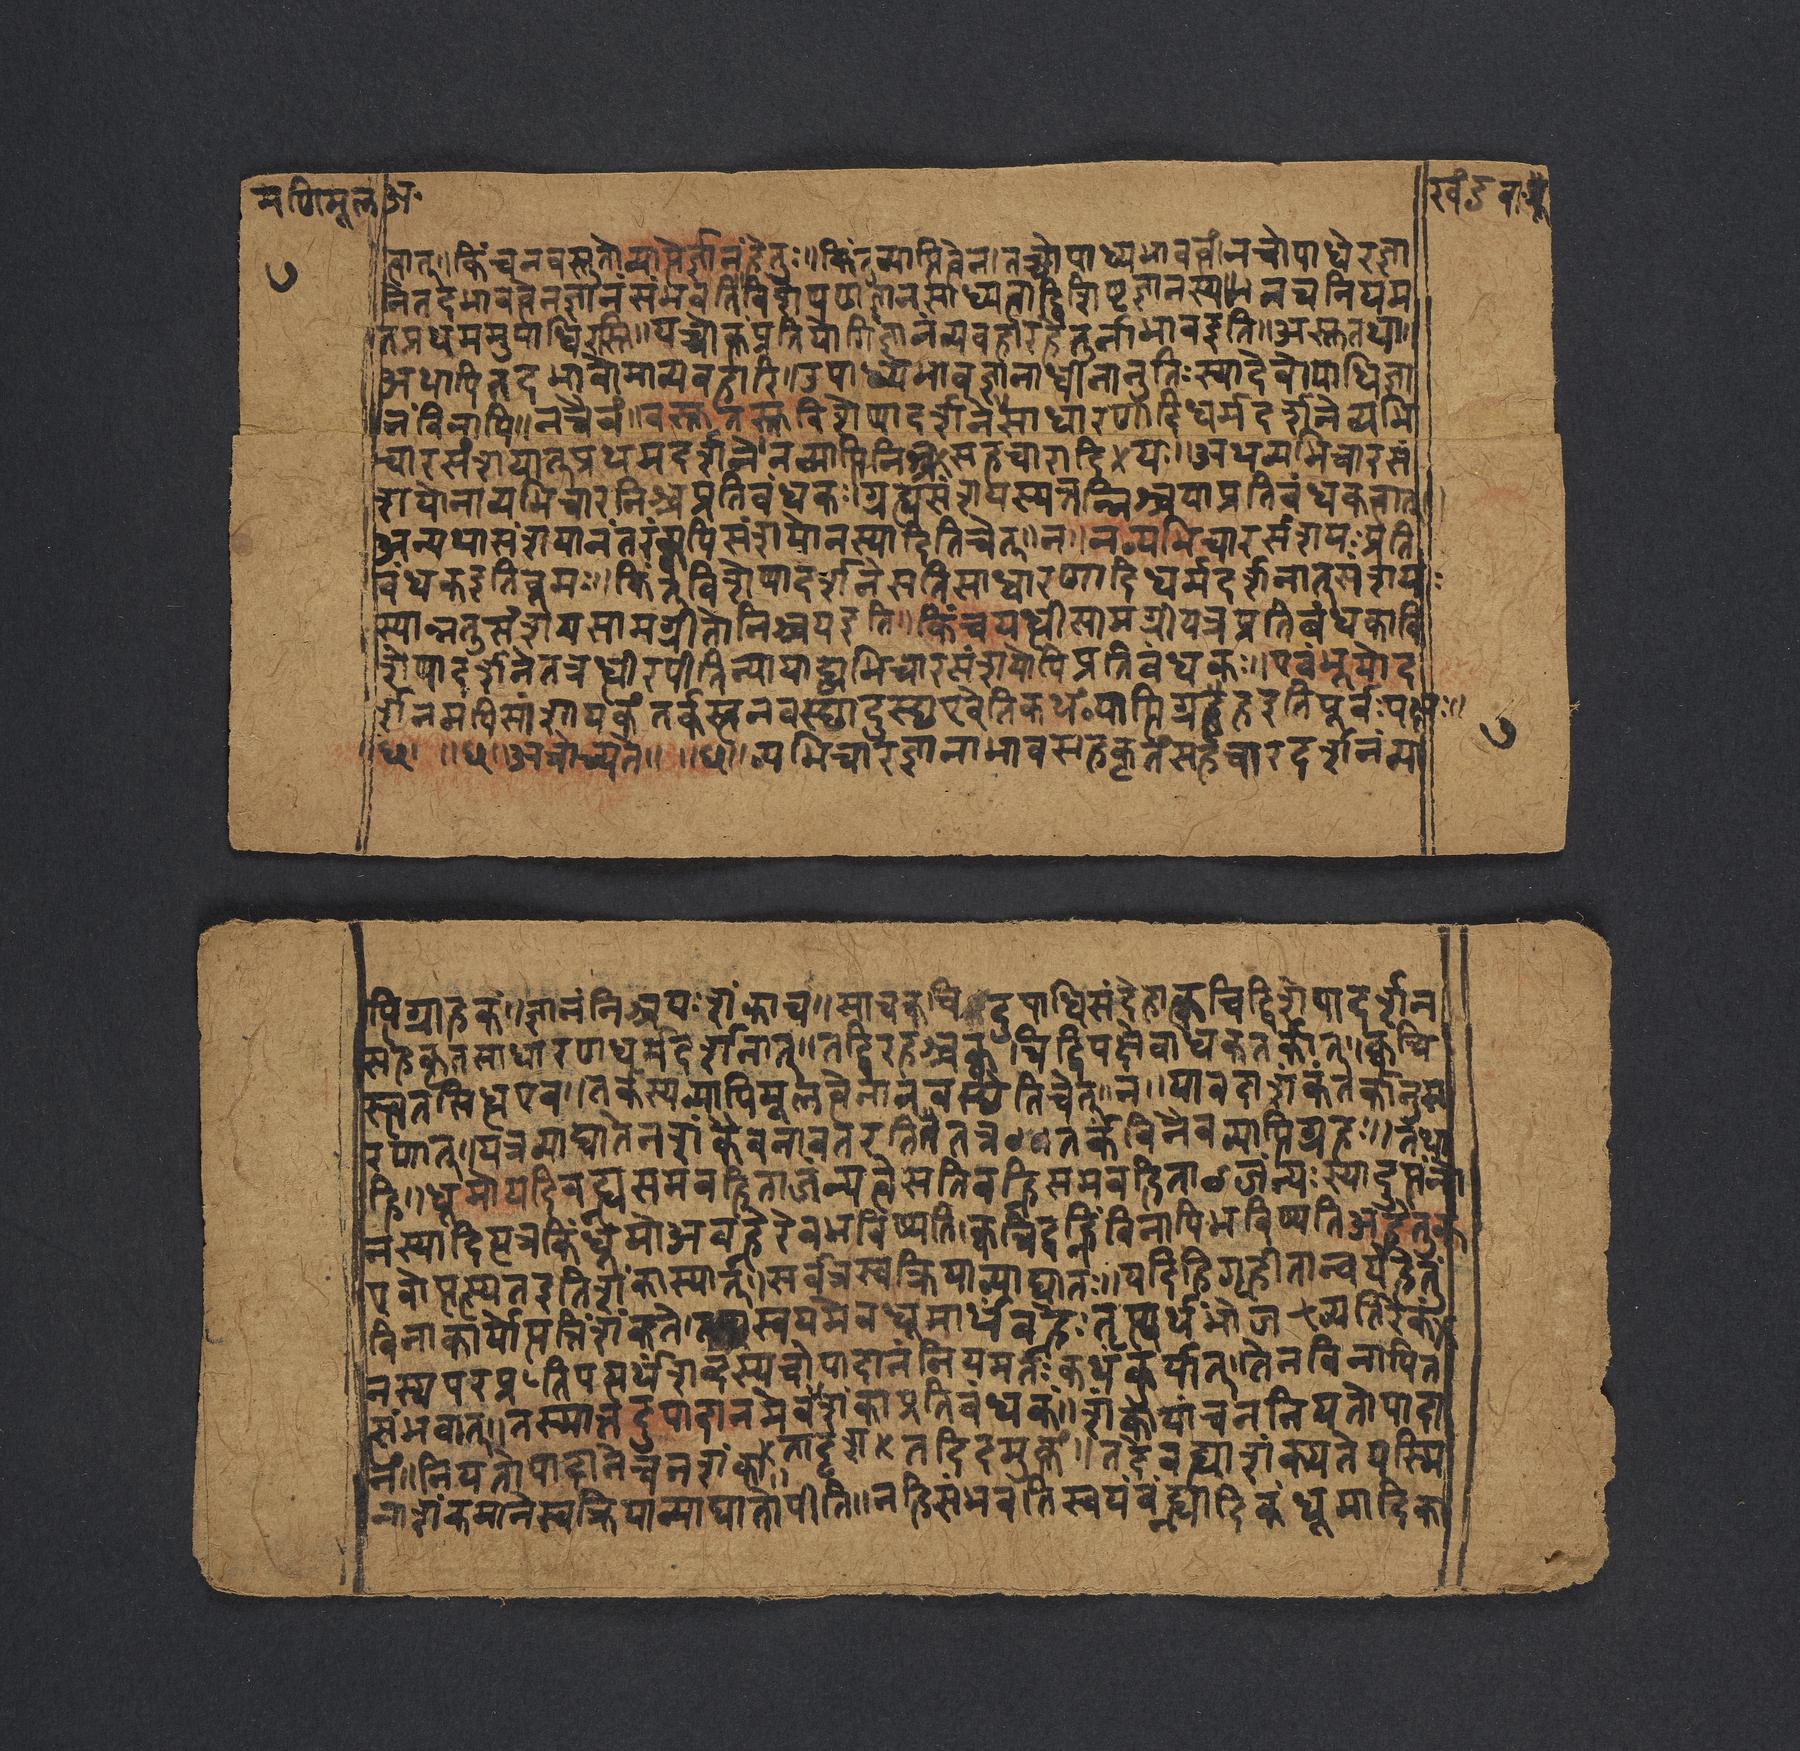 मणिमूल अ॰
खंड व॰ मू
७
त्वात्॥ किंच न वस्तुतो व्याप्तेर्ज्ञानं हेतुः॥ किंतु व्याप्तित्वेन। तच्चोपाध्यभाववत्वं। न चोपाधेरज्ञा
ने तदभावत्वेन ज्ञानं संभवति। विशेषणज्ञानसाध्यत्वाद्विशिष्टज्ञानस्य॥ न च नियम
तः प्रथममुपाधिरस्ति॥ यच्चोक्तं प्रतियोगिज्ञानं व्यवहारहेतुर्नाभाव इति॥ अस्तु तथा॥
अथापि तदभावो मा व्यवहारि॥ उपाध्यभावज्ञानाधीनानुमितिः स्यादेवोपाधिज्ञा
नं विनापि॥ न चैवं॥ वस्तुतस्तु विशेषादर्शने साधारणादिधर्मदर्शने व्यभि
चारसंशयात् प्रथमदर्शने न व्याप्तिनिश्च सहचारादि यः॥ अथ व्यभिचारसं
शयो नाव्यभिचारनिश्चप्रतिबंधकः। ग्राह्यसंशयस्य तन्निश्चयाप्रतिबंधकत्वात्॥
अन्यथा संशयानंतरं क्वापि संशयो न स्यादिति चेत्॥ न॥ न व्यभिचारसंशयः प्रति
बंधक इति ब्रूमः॥ किंतु विशेषादर्शने सति साधारणादिधर्मदर्शनात् संशयः
स्यान्नतु संशयसामग्रीतो निश्चय इति॥ किंच यद्धीसामग्री यत्र प्रतिबंधका वि
शेषादर्शने तत्र धीरपीति न्यायाद्व्यभिचारसंशयोपि प्रतिबंधकः॥ एवं भूयोद
र्शनमपि संशायकं तर्कस्त्वनवस्थादुस्थ एवेति कथं व्याप्तिग्रह इति पूर्वःपक्षः॥
॥ध॥ ॥ध॥ अत्रोच्यते॥ ॥ध॥ व्यभिचारज्ञानाभावसहकृतं सहचारदर्शनं व्या
७
प्तिग्राहकं॥ ज्ञानं निश्चयः शंका च॥ सा च क्वचिदुपाधिसंदेहात् क्वचिद्विशेषादर्शन
सहकृतसाधारणधर्मदर्शनात्॥ तद्विरहश्च क्वचिद्विपक्षे बाधकतर्कात्॥ क्वचि
त्स्वतः सिद्ध एव॥ तर्कस्य व्याप्तिमूलत्वेनानवस्थेति चेत्॥ न॥ यावदाशंकं तर्कानुस
रणात्॥ यत्र व्याघातेन शंकैव नावतरति तत्र तर्कं विनैव व्याप्तिग्रहः॥ तथा
हि॥ धूमो यदि वह्न्यसमवहिताजन्यत्वे सति वह्निसमवहिताजन्यः स्यादुत्पन्नो
न स्यादित्यत्र किं धूमो अवह्नेरेव भविष्यति। क्वचिद्वह्निं विनापि भविष्यति अहेतुक
एवोत्पत्स्यत इति शंका स्यात्॥ सर्वत्र स्वक्रियाव्याघातः॥ यदि हि गृहीतान्वयं हेतुं
विना कार्योत्पत्तिं शंकेत। स्वयमेव धूमार्थं वह्नेः तृप्त्यर्थं भोज व्यतिरेकं
नस्य परप्रतिपत्त्यर्थं शब्दस्य चोपादानं नियमतः कथं कुर्यात्। तेन विनापि त
त्संभवात्॥ तस्मात्तदुपादानमेव शंकाप्रतिबंधकं॥ शंकायां च न नियतोपादा
नं॥ नियतोपादाने च न शंका॥ तादृश तदिदमुक्तं॥ तदेव ह्याशंक्यते यस्मि
न्नाशंकमाने स्वक्रियाव्याघातोपीति॥ नहि संभवति स्वयं वह्न्यादिकं धूमादिका